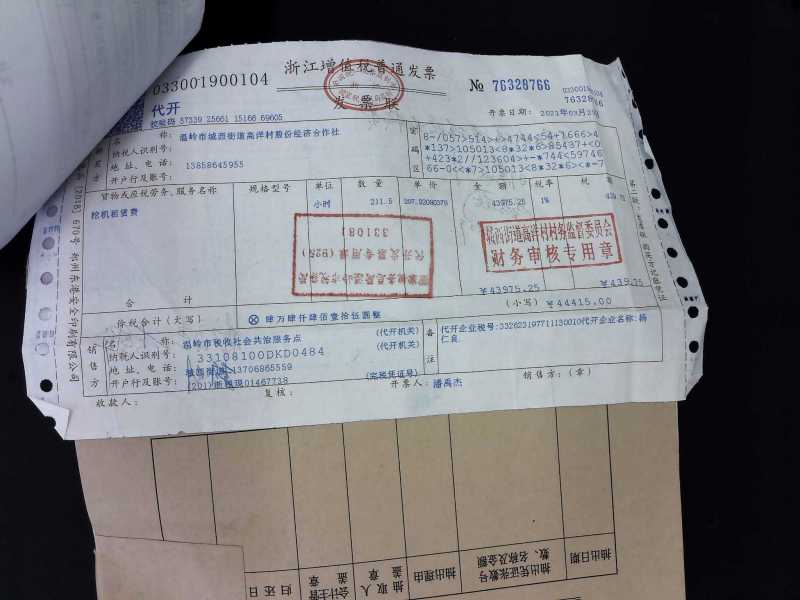 浙江增值税普通发票
033001900104
№ 76328766
033001900104
76328766
代开
发票联
校验码 57339 25661 15166 69605
开票日期:
名 称: 温岭市城西街道高洋村股份经济合作社
纳税人识别号:
地 址、电 话: 13858645955
开户行及账号:
密码区
8-/057>514>+>4744<54+7666>4
*137>105013<8*32*6>85437+<0
+423*2//123604>+-*744<59746
66-0<<*7>105013<8*32*6><*-7
货物或应税劳务、服务名称
规格型号
单位
数 量
单 价
金 额
税率
税 额
挖机租赁费
小时
211.5
207.92080378
43975.25
1%
331081
代开发票专用章
城西街道高洋村村务监督委员会
财务审核专用章
合 计
¥43975.25
¥439.75
价税合计(大写)
⊗ 肆万肆仟肆佰壹拾伍圆整
(小写) ¥44415.00
销售方
名 称: 温岭市税收社会共治服务点
(代开机关)
纳税人识别号: 33108100DKD0484
(代开机关)
地 址、电 话: 城西街道 13706865559
开户行及账号: (201)浙税现01467718
(完税凭证号)
备注
代开企业税号:332623197711130010代开企业名称:杨
仁良
收款人:
复核:
开票人: 潘禹杰
销售方:(章)
抽出日期
抽出凭证张数号
数、名称及金额
抽出理由
抽取人
盖章
会计主管
盖章
归还日